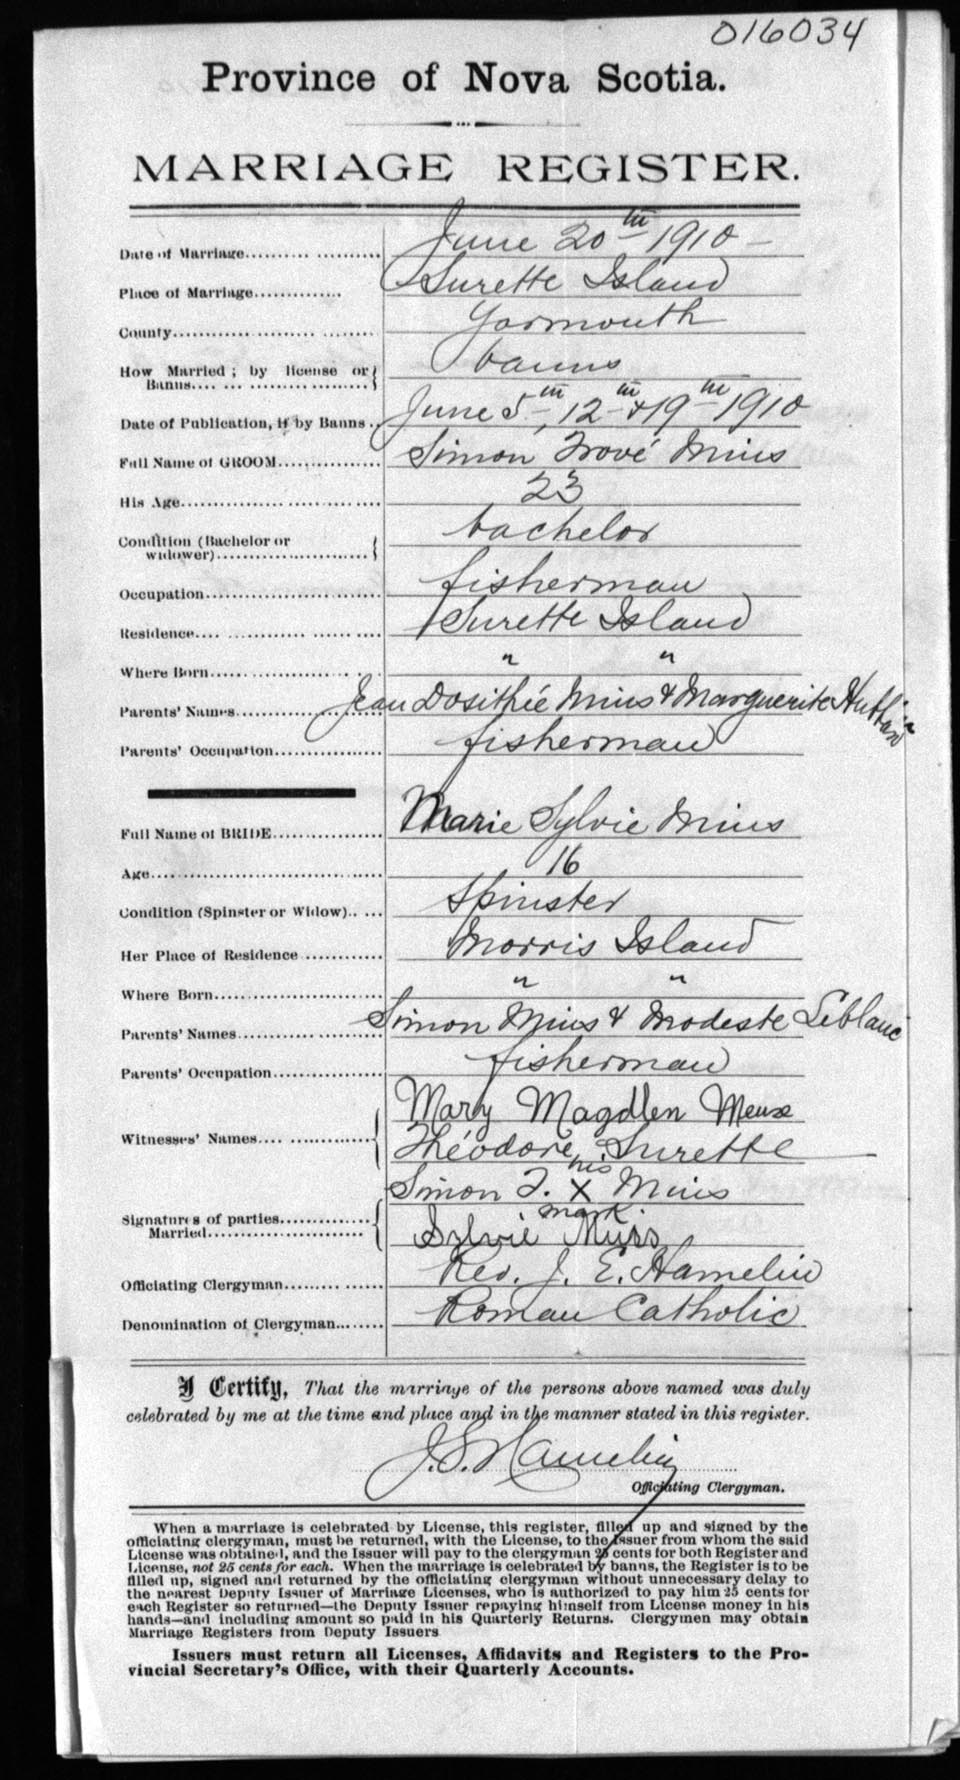 016034
Province of Nova Scotia.
MARRIAGE REGISTER.
Date of Marriage........... ........... June 20th 1910
Place of Marriage.............. Surette Island
County....................... ........ Yarmouth
How Married ; by license or Banns.... ... ................... banns
Date of Publication, if by Banns .. June 5th, 12th & 19th 1910
Full Name of GROOM................ Simon Trové Mius
His Age................................ 23
Condition (Bachelor or widower)........................... bachelor
Occupation............................ fisherman
Residence.... ............ ....... .... Surette Island
Where Born........................... " "
Parents' Names........................ Jean Dosithée Mius & Marguerite
Parents' Occupation................. fisherman
Full Name of BRIDE................. Marie Sylvie Mius
Age..................................... 16
Condition (Spinster or Widow).. ... Spinster
Her Place of Residence ............ Morris Island
Where Born........................... " "
Parents' Names........................ Simon Mius & Modeste Leblanc
Parents' Occupation................. fisherman
Witnesses' Names.... ............... Mary Magdlen Meuse
Théodore Surette
Signatures of parties Married.......................... Simon T. his X mark Mius
Sylvie Muss
Officiating Clergyman............... Rev. J. E. Hamelin
Denomination of Clergyman........ Roman Catholic
I Certify, That the marriage of the persons above named was duly
celebrated by me at the time and place and in the manner stated in this register.
J. E. Hamelin
Officiating Clergyman.
When a marriage is celebrated by License, this register, filled up and signed by the
officiating clergyman, must be returned, with the License, to the Issuer from whom the said
License was obtained, and the Issuer will pay to the clergyman 25 cents for both Register and
License, not 25 cents for each. When the marriage is celebrated by banns, the Register is to be
filled up, signed and returned by the officiating clergyman without unnecessary delay to
the nearest Deputy Issuer of Marriage Licenses, who is authorized to pay him 25 cents for
each Register so returned—the Deputy Issuer repaying himself from License money in his
hands—and including amount so paid in his Quarterly Returns. Clergymen may obtain
Marriage Registers from Deputy Issuers
Issuers must return all Licenses, Affidavits and Registers to the Pro-
vincial Secretary's Office, with their Quarterly Accounts.